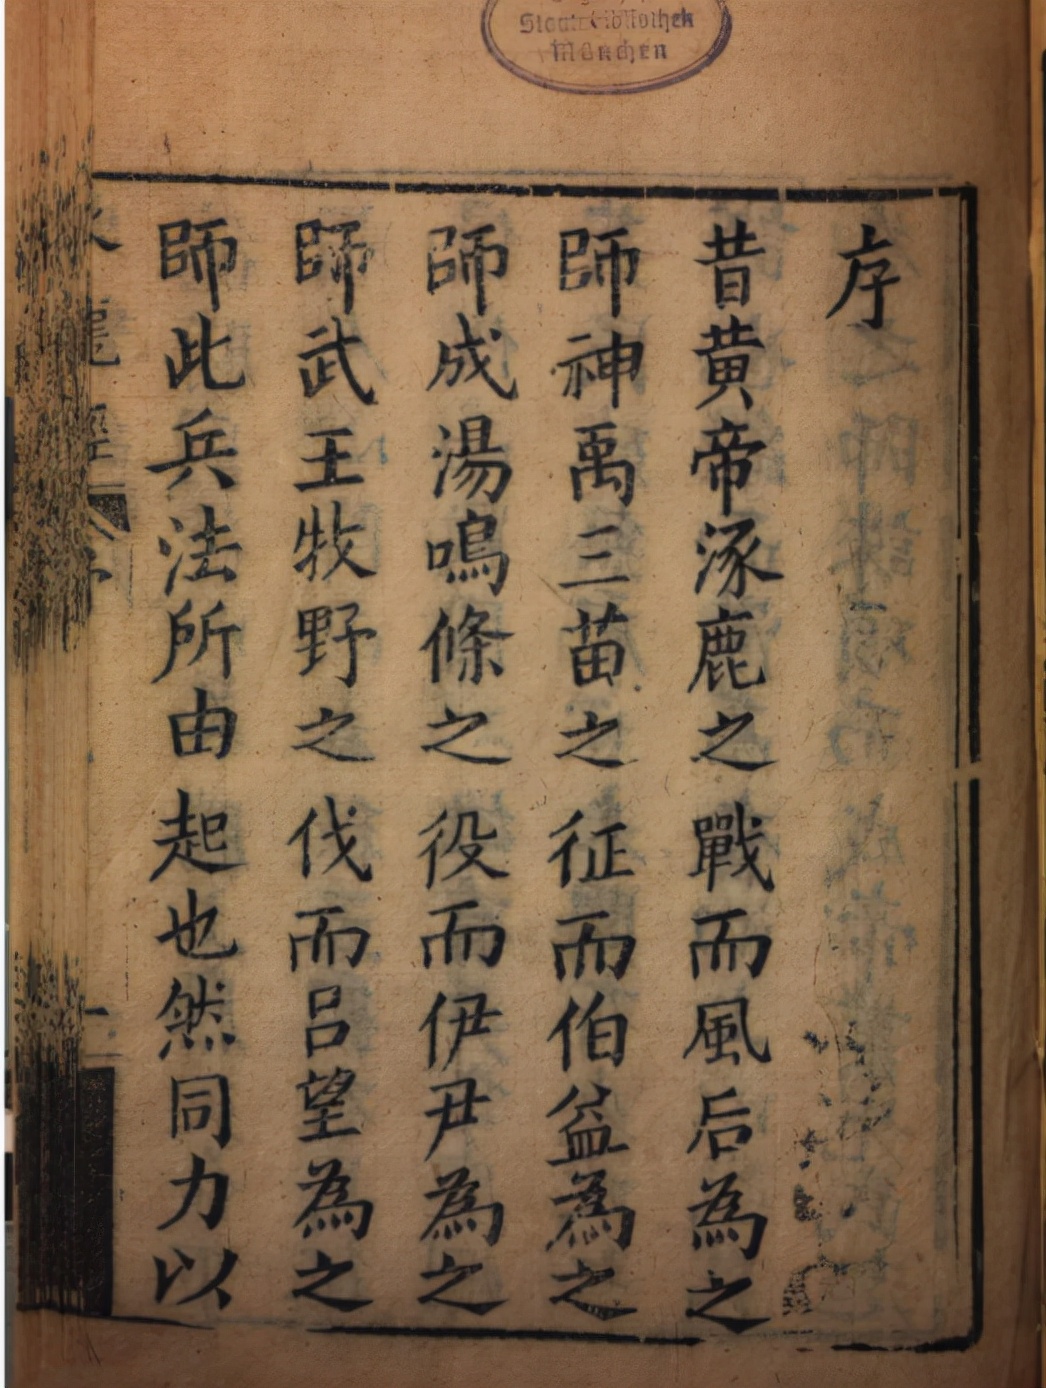 Staatsbibliothek
München
序
昔黄帝涿鹿之戰而風后為之
師神禹三苗之征而伯益為之
師成湯鳴條之役而伊尹為之
師武王牧野之伐而呂望為之
師此兵法所由起也然同力以